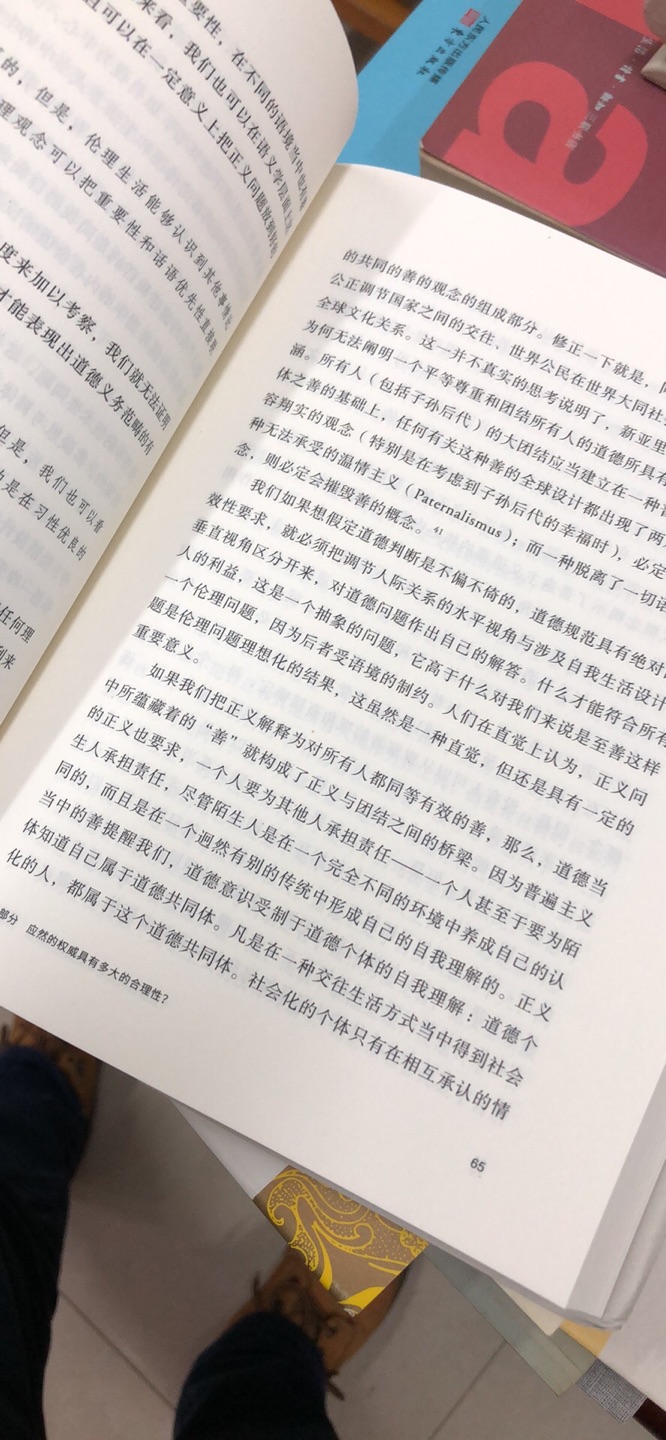 要性，在不同的语境当中
来看，我们也可以在语义学层面上
且可以在一定意义上把正义问题放到
的，但是，伦理生活能够认识到其他
理观念可以把重要性和话语优先性直接
度来加以考察，我们就无法证明
才能表现出道德义务范畴的有
但是，我们也可以看
是在习性优良的
任何理
到来
的共同的善的观念的组成部分。修正一下就是，
公正调节国家之间的交往、世界公民在世界大同社
全球文化关系。这一并不真实的思考说明了，新亚里
为何无法阐明一个平等尊重和团结所有人的道德所具有
涵。所有人（包括子孙后代）的大团结应当建立在一种
体之善的基础上，任何有关这种善的全球设计都出现了两
容翔实的观念（特别是在考虑到子孙后代的幸福时），必定
种无法承受的温情主义（Paternalismus）；而一种脱离了一切
念，则必定会摧毁善的概念。41
我们如果想假定道德判断是不偏不倚的，道德规范具有绝对
效性要求，就必须把调节人际关系的水平视角与涉及自我生活设计
垂直视角区分开来，对道德问题作出自己的解答。什么才能符合所有
人的利益，这是一个抽象的问题，它高于什么对我们来说是至善这样
一个伦理问题，因为后者受语境的制约。人们在直觉上认为，正义问
题是伦理问题理想化的结果，这虽然是一种直觉，但还是具有一定的
重要意义。
如果我们把正义解释为对所有人都同等有效的善，那么，道德当
中所蕴藏着的“善”就构成了正义与团结之间的桥梁。因为普遍主义
的正义也要求，一个人要为其他人承担责任——一个人甚至于要为陌
生人承担责任，尽管陌生人是在一个完全不同的环境中养成自己的认
同的，而且是在一个迥然有别的传统中形成自己的自我理解的。正义
当中的善提醒我们，道德意识受制于道德个体的自我理解：道德个
体知道自己属于道德共同体。凡是在一种交往生活方式当中得到社会
化的人，都属于这个道德共同体。社会化的个体只有在相互承认的情
部分 应然的权威具有多大的合理性？
65